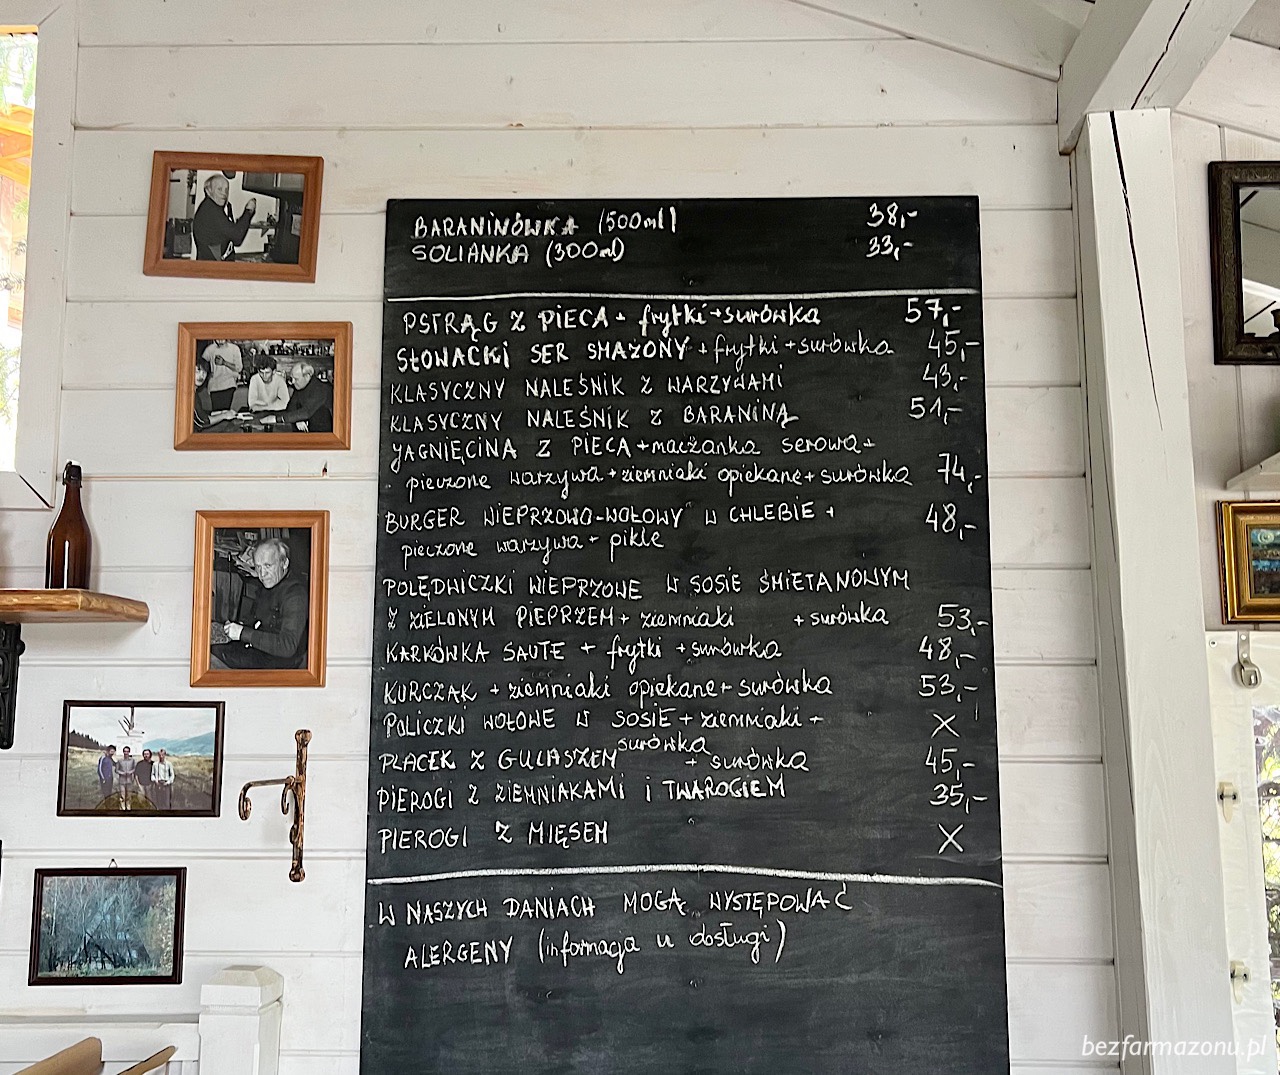 BARANINÓWKA (500ml) 38,-
SOLIANKA (300ml) 33,-
PSTRĄG Z PIECA + frytki + surówka 57,-
SŁOWACKI SER SMAŻONY + frytki + surówka 45,-
KLASYCZNY NALEŚNIK Z WARZYWAMI 43,-
KLASYCZNY NALEŚNIK Z BARANINĄ 51,-
JAGNIĘCINA Z PIECA + maczanka serowa +
pieczone warzywa + ziemniaki opiekane + surówka 74,-
BURGER WIEPRZOWO-WOŁOWY W CHLEBIE + 48,-
pieczone warzywa + pikle
POLĘDWICZKI WIEPRZOWE W SOSIE ŚMIETANOWYM
Z ZIELONYM PIEPRZEM + ziemniaki + surówka 53,-
KARKÓWKA SAUTE + frytki + surówka 48,-
KURCZAK + ziemniaki opiekane + surówka 53,-
POLICZKI WOŁOWE W SOSIE + ziemniaki + X
surówka
PLACEK Z GULASZEM + surówka 45,-
PIEROGI Z ZIEMNIAKAMI i TWAROGIEM 35,-
PIEROGI Z MIĘSEM X
W NASZYCH DANIACH MOGĄ WYSTĘPOWAĆ
ALERGENY (informacja u obsługi)
bezfarmazonu.pl